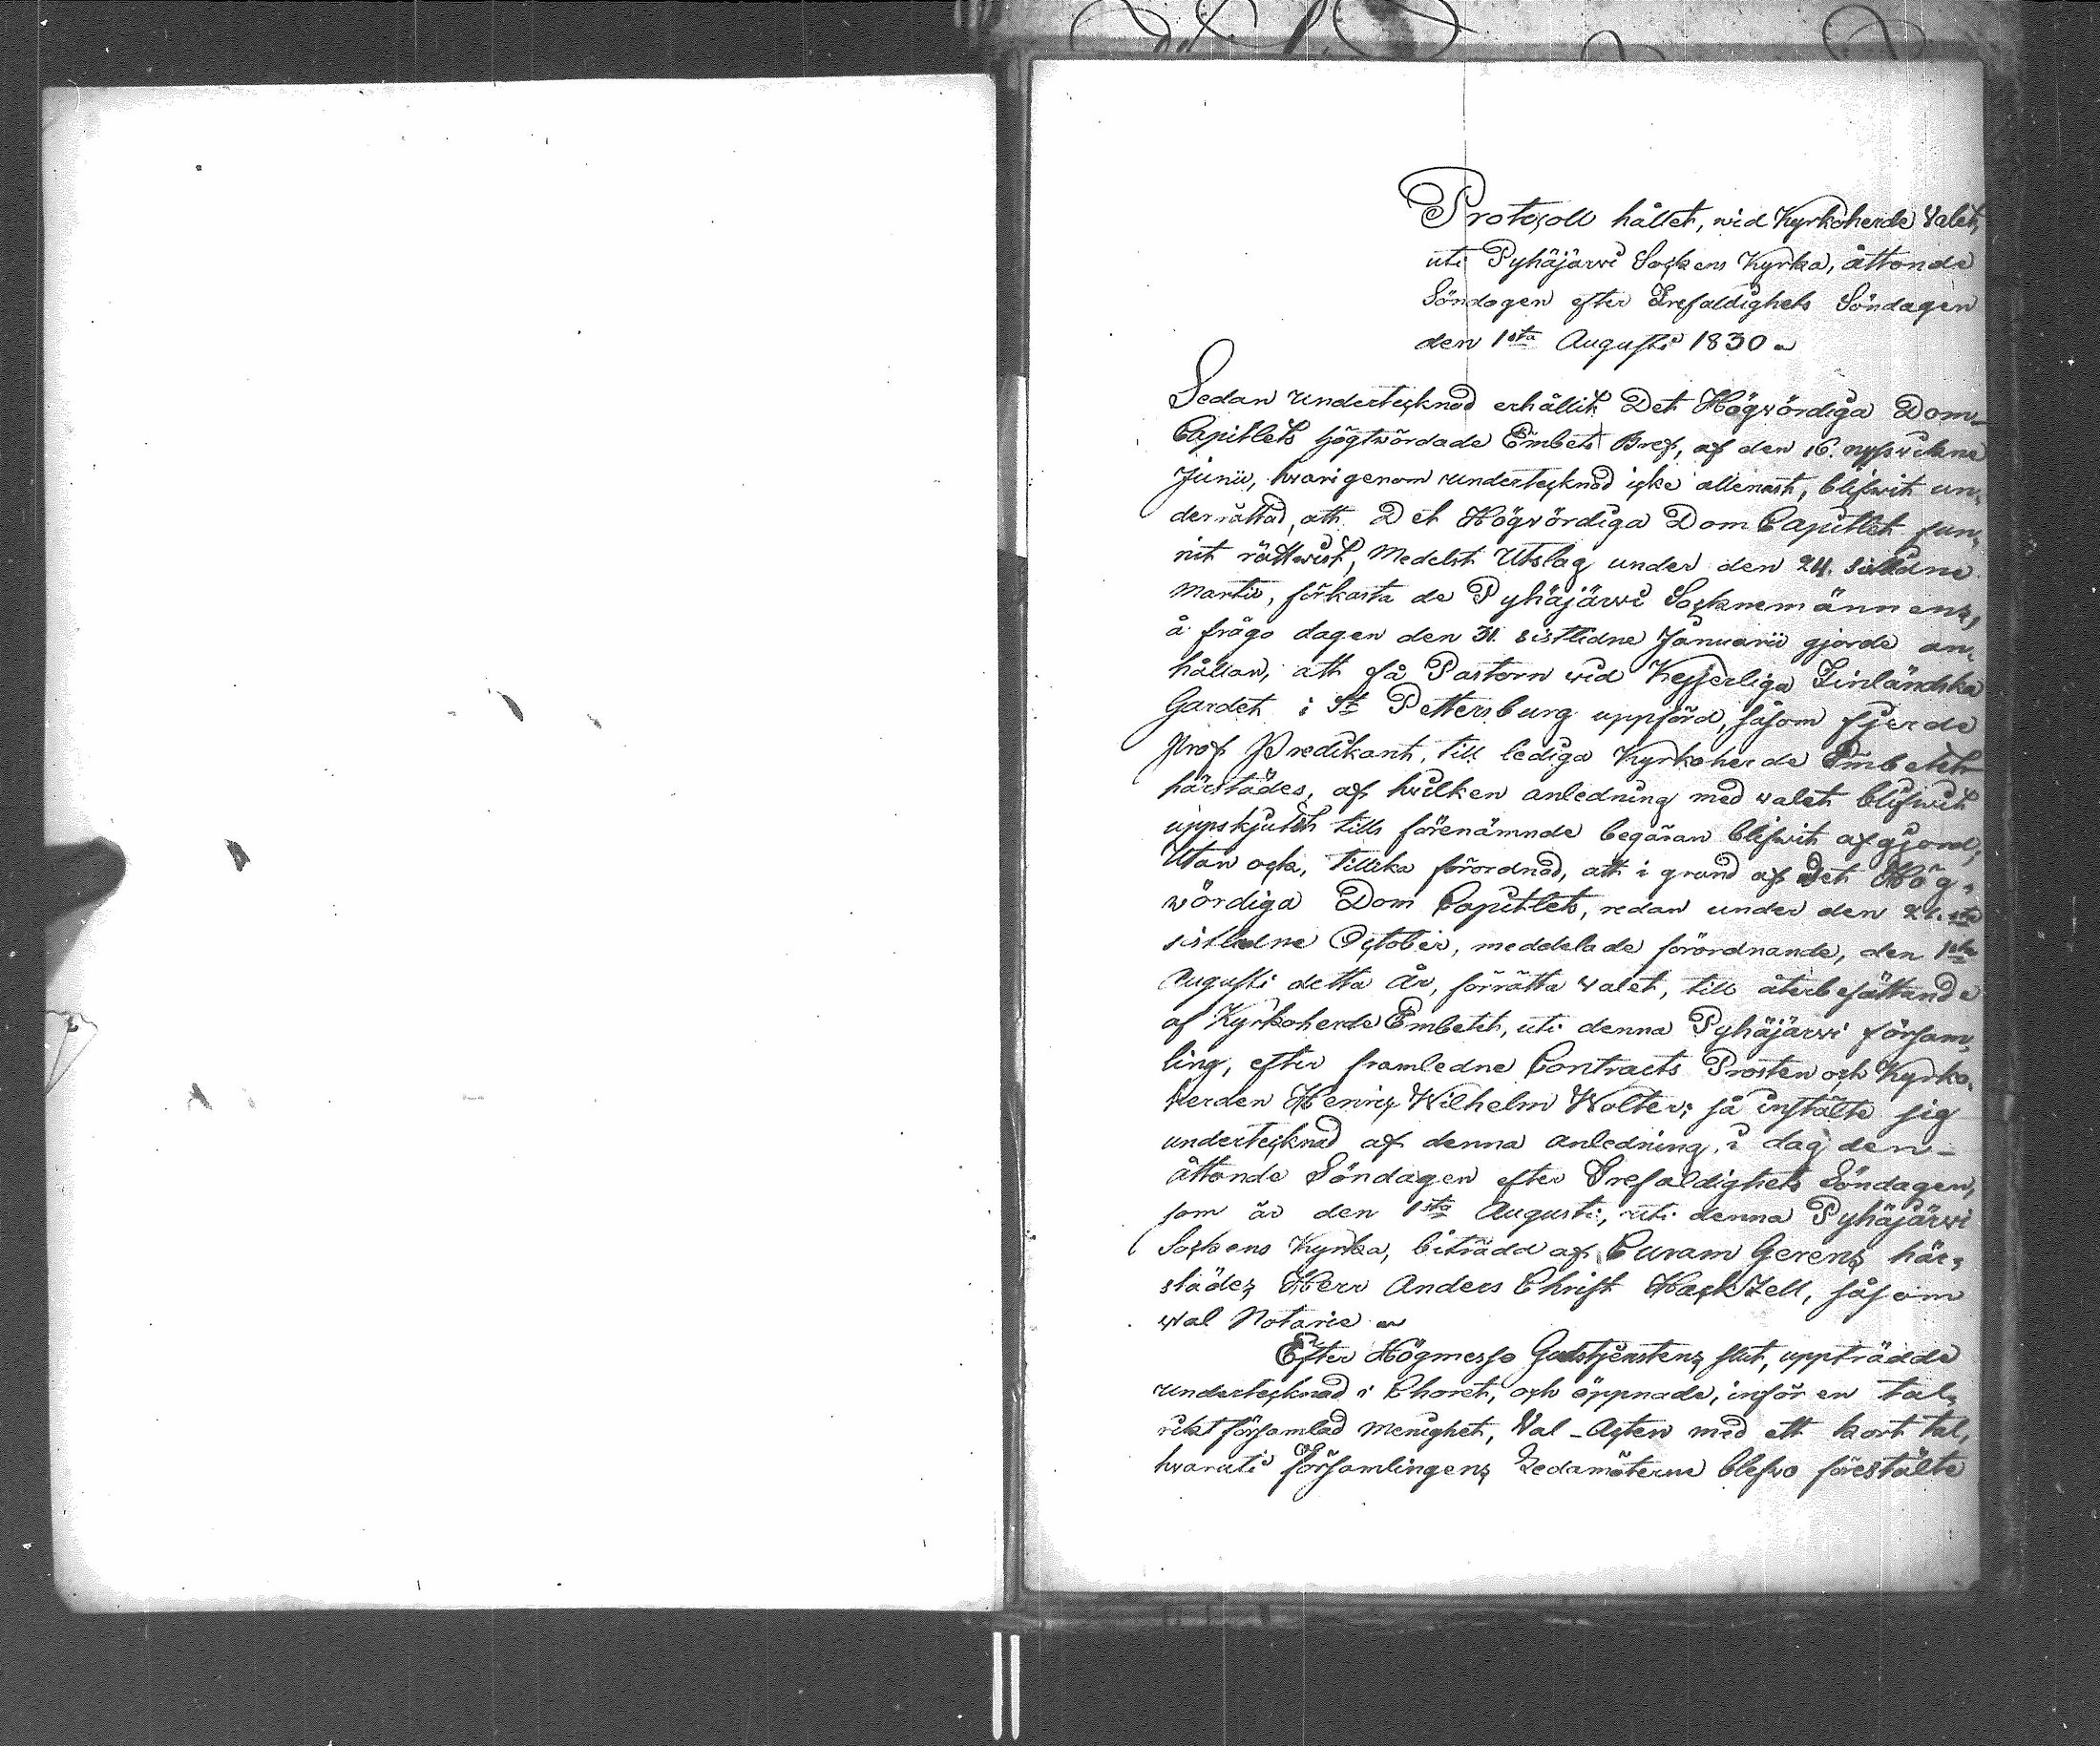 Protocoll hållet, wid Kyrkoherde Valet,
uti Pyhäjärwi Sockens Kyrka, åttonde
Söndagen efter Trefaldighets Söndagen
den 1sta Augusti 1830
Sedan undertecknad erhållit Det Högwördiga Dom-
Capitlets högtwördade Embets Bref, af den 16. nyssvikne
Junii, hwarigenom undertecknad icke allenast, blifwit un-
derrättad, att Det Högwördiga Dom Capitlet fun-
nit rättwist, Medelst Utslag under den 24. sistlidne
Martii, förkasta de Pyhäjärwi Socknemännens,
å frågo dagen den 31. sistlidne Januarii gjorde an-
hållan, att få Pastorn wid Kejserliga Finländska
Gardet i St Pettersburg uppförd, såsom fjerde
Prof Predikant, till lediga Kyrkoherde Embetet
härstädes, af hwilken anledning med walet blifwit
uppskjutit tills förenämnde begäran blifwit afgjord,
Utan ock, tillika förordnad, att i grund af Det Hög-
wördiga Dom Capitlets, redan under den 21.sta
sistlidne October, meddelade förordnande, den 1sta
Augusti detta År, förrätta walet, till återbesättande
af Kyrkoherde Embetet, uti denna Pyhäjärwi försam-
ling, efter framledne Contracts Prosten och Kyrko-
herden Henric Wilhelm Wolter; så instälte sig
undertecknad af denna anledning, i dag den
åttonde Söndagen efter Trefaldighets Söndagen,
som är den 1sta Augusti, uti denna Pyhäjärwi
Sockens Kyrka, biträdd af Curam Gerens här-
städes Herr Anders Christ Hackzell, såsom
wal Notarie
Efter Högmesso Gudstjenstens slut, uppträdde
undertecknad i Choret, och öppnade, inför en tal-
rikt församlad menighet, Val-Acten med ett kort tal,
hwaruti församlingens Ledamöterne blefwo förestälte